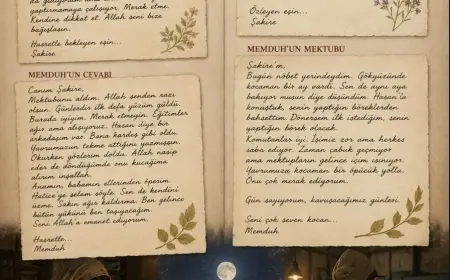 yaptırmamaya çalışıyor. Merak etme.
Kendine dikkat et. Allah seni bize
bağışlasın.
Hasretle bekleyen eşin...
Şakire
MEMDUH'UN CEVABI
Canım Şakire,
Mektubunu aldım. Allah senden razı
olsun. Günlerdir ilk defa yüzüm güldü.
Burada iyiyim. Merak etmeyin. Eğitimler
ağır ama alışıyoruz. Hasan diye bir
arkadaşım var. Bana kardeş gibi oldu.
Yavrumuzun tekme attığını yazmışsın.
Okurken gözlerim doldu. Allah nasip
eder de döndüğümde onu kucağıma
alırım inşallah.
Anamın, babamın ellerinden öperim.
Hatice'ye selam söyle. Sen de kendini
üzme. Sakın ağır kaldırma. Ben gelince
bütün yükünü ben taşıyacağım.
Seni Allah'a emanet ediyorum.
Hasretle...
Memduh
Özleyen eşin...
Şakire
MEMDUH'UN MEKTUBU
Şakire'm,
Bugün nöbet yerindeydim. Gökyüzünde
kocaman bir ay vardı. Sen de aynı aya
bakıyor musun diye düşündüm. Hasan'la
konuştuk, senin yaptığın böreklerden
bahsettim. Dönersem ilk istediğim, senin
yaptığın börek olacak.
Komutanlar iyi. İşimiz zor ama herkes
sabır ediyor. Zaman çabuk geçmiyor
ama mektupların gelince içim ısınıyor.
Yavrumuza kocaman bir öpücük yolla.
Onu çok merak ediyorum.
Gün sayıyorum, kavuşacağımız günleri.
Seni çok seven kocan...
Memduh